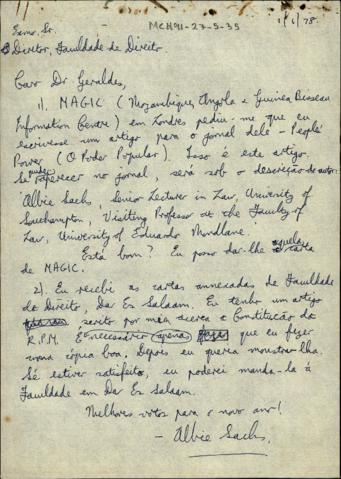 MCH91-27-5-35
1/1/78.
Exmo. Sr.
Diretor, Faculdade de Direito
Caro Dr Geraldes,
1). MAGIC (Mozambique, Angola e Guinea Bissau
Information Centre) em Londres pediu-me que eu
escrevesse um artigo para o jornal dele - People's
Power (O Poder Popular). Isso é este artigo.
Se puder aparecer no jornal, será sob o descreção de autor:
Albie Sachs, Senior Lecturer in Law, University of
Southampton, Visiting Professor at the Faculty of
Law, University of Eduardo Mondlane.
Está bom? Eu posso dar-lhe aquela carta
de MAGIC.
2). Eu recebi as cartas annexadas de Faculdade
do Direito, Dar Es Salaam. Eu tenho um artigo
escrito por mim acerca a Constituição da
R.P.M. É necessário apenas que eu fizer
uma cópia boa. Depois eu queria monstrar-lha.
Sé estiver satisfeito, eu poderei manda-la à
Faculdade em Dar Es Salaam.
Melhores votos para o novo ano!
- Albie Sachs.